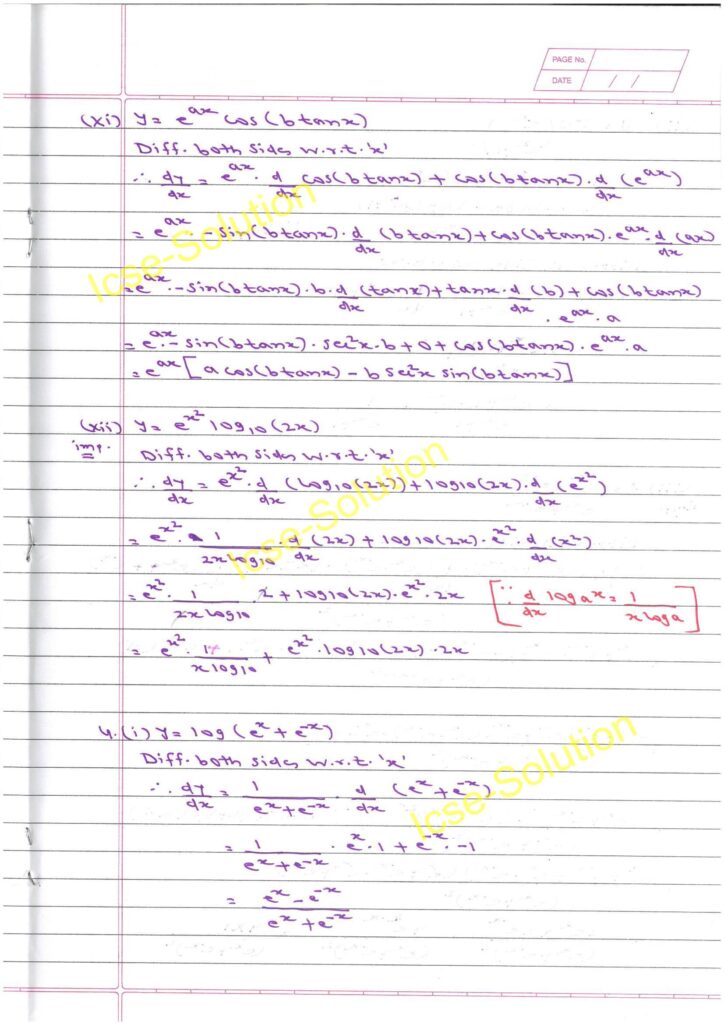 PAGE No.
DATE / /
(xi) y = e^ax cos(b tanx)
Diff. both sides w.r.t. 'x'
∴ dy/dx = e^ax · d/dx cos(b tanx) + cos(b tanx) · d/dx (e^ax)
= e^ax · - sin(b tanx) · d/dx (b tanx) + cos(b tanx) · e^ax · d/dx (ax)
= e^ax · - sin(b tanx) · b · d/dx (tanx) + tanx · d/dx (b) + cos(b tanx)
· e^ax · a
= e^ax · - sin(b tanx) · sec²x · b + 0 + cos(b tanx) · e^ax · a
= e^ax [a cos(b tanx) - b sec²x sin(b tanx)]
(xii) y = e^x² log10(2x)
imp.
Diff. both sides w.r.t. 'x'
∴ dy/dx = e^x² · d/dx (log10(2x)) + log10(2x) · d/dx (e^x²)
= e^x² · 1/2x log10 · d/dx (2x) + log10(2x) · e^x² · d/dx (x²)
= e^x² · 1/2x log10 · 2 + log10(2x) · e^x² · 2x [∵ d/dx loga^x = 1/x loga]
= e^x² · 1/x log10 + e^x² · log10(2x) · 2x
4. (i) y = log (e^x + e^-x)
Diff. both sides w.r.t. 'x'
∴ dy/dx = 1/e^x + e^-x · d/dx (e^x + e^-x)
= 1/e^x + e^-x · e^x · 1 + e^-x · -1
= e^x - e^-x/e^x + e^-x
Icse-Solution
Icse-Solution
Icse-Solution